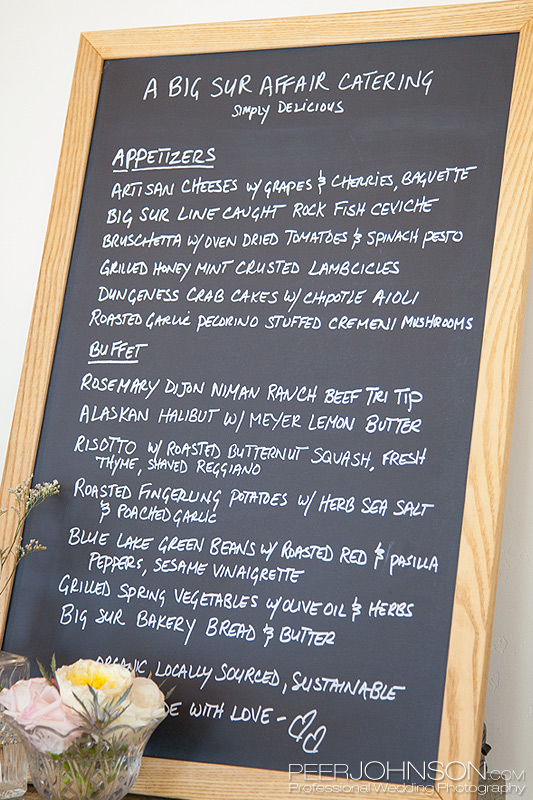 A BIG SUR AFFAIR CATERING
SIMPLY DELICIOUS
APPETIZERS
ARTISAN CHEESES W/ GRAPES & CHERRIES, BAGUETTE
BIG SUR LINE CAUGHT ROCK FISH CEVICHE
BRUSCHETTA W/ OVEN DRIED TOMATOES & SPINACH PESTO
GRILLED HONEY MINT CRUSTED LAMBCICLES
DUNGENESS CRAB CAKES W/ CHIPOTLE AIOLI
ROASTED GARLIC PECORINO STUFFED CREMENI MUSHROOMS
BUFFET
ROSEMARY DIJON NIMAN RANCH BEEF TRI TIP
ALASKAN HALIBUT W/ MEYER LEMON BUTTER
RISOTTO W/ ROASTED BUTTERNUT SQUASH, FRESH
THYME, SHAVED REGGIANO
ROASTED FINGERLING POTATOES W/ HERB SEA SALT
& POACHED GARLIC
BLUE LAKE GREEN BEANS W/ ROASTED RED & PASILLA
PEPPERS, SESAME VINAIGRETTE
GRILLED SPRING VEGETABLES W/ OLIVE OIL & HERBS
BIG SUR BAKERY BREAD & BUTTER
ORGANIC, LOCALLY SOURCED, SUSTAINABLE
DE WITH LOVE -
PEERJOHNSON.COM
Professional Wedding Photography